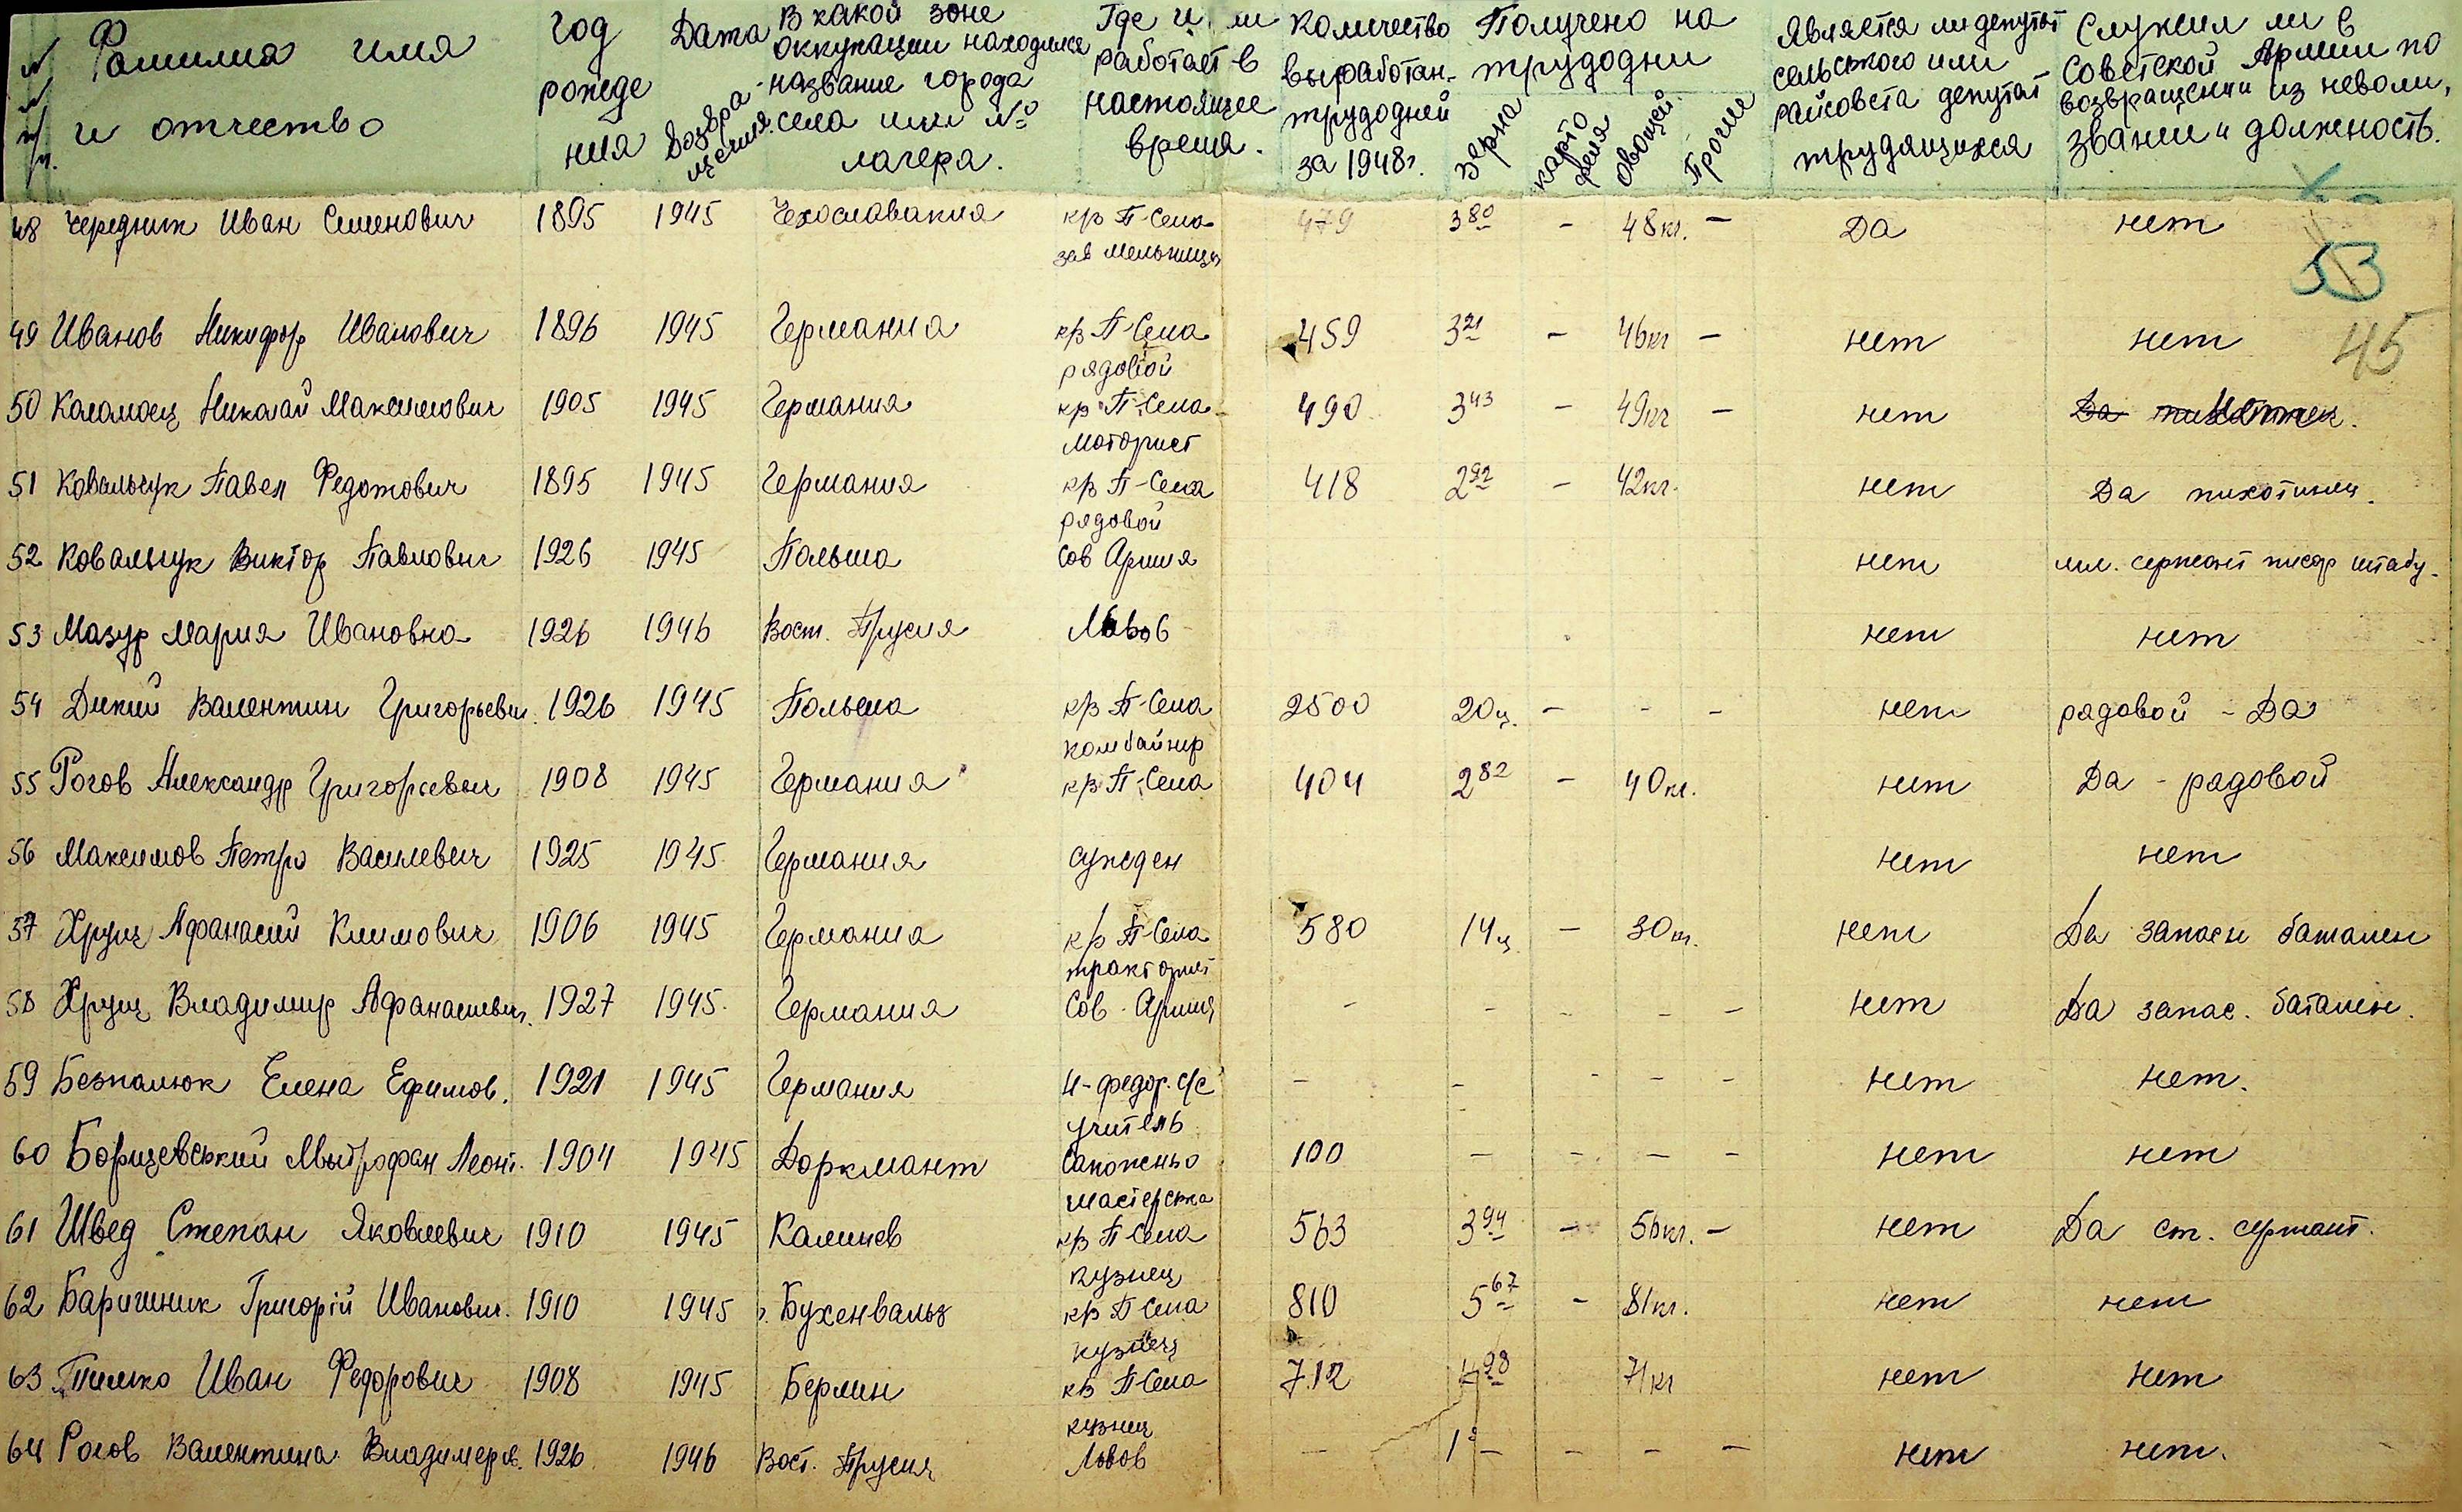 № Фамилия имя и отчество
Год рождения
Дата возвращения
В какой зоне оккупации находился название города села или № лагеря.
Где и работает в настоящее время.
Количество выработан. трудодней за 1948г.
Получено на трудодни
зерна картофеля овощей Прочии
Является ли депутат сельського или райсовета депутат трудящихся
Служил ли в Советской Армии по возвращении из неволи, звание и должность.
48 Чередник Иван Семенович 1895 1945 Чехославакия к/в П-Села 479 3 80 - 48кг. - Да нет
зав мельницы
53
49 Иванов Никифор Иванович 1896 1945 Германия к/в П-Села 459 3 21 - 46кг - нет нет 45
рядовой
50 Каламоец Николай Максимович 1905 1945 Германия к/в П-Села 490 3 43 - 49кг - нет Да
моторист
51 Ковальчук Павел Федотович 1895 1945 Германия к/в П-Села 418 2 92 - 42кг. нет Да пихотинец.
рядовой
52 Ковальчук Виктор Павлович 1926 1945 Польша Сов Армия нет мл. сержант писар штабу.
53 Мазур Мария Ивановна 1926 1946 Вост. Прусия Львов нет нет
54 Дикий Валентин Григорьевич. 1926 1945 Польша к/в П-Села 2500 20ц. - - - нет рядовой - Да
комбайнер
55 Рогов Александр Григорьевич 1908 1945 Германия к/в П-Села 404 2 82 - 40кг. нет Да - рядовой
56 Максимов Петро Василевич 1925 1945 Германия сужден нет нет
57 Хрущ Афанасий Климович 1906 1945 Германия к/в П-Села 580 14ц - 30кг. нет Да запасн батален
тракторист
58 Хрущ Владимир Афанасиевич. 1927 1945 Германия Сов. Армия - - - - - нет Да запас. баталён.
59 Безпалюк Елена Ефимов. 1921 1945 Германия Н-федор. с/с - - - - - нет нет.
учитель
60 Борщевський Мытрофан Леонт. 1904 1945 Доркмант Сапожньо 100 - - - - нет нет
мастерска
61 Швед Степан Яковлевич 1910 1945 Калинев к/в П Села 563 3 94 - 56кг. - нет Да ст. сержант.
кузнец
62 Баришник Григорій Иванович. 1910 1945 г. Бухенвальд к/в П Села 810 5 67 - 81кг. нет нет
кузнец
63 Тимко Иван Федорович 1908 1945 Берлин кв П-Села 712 4 98 71кг нет нет
кузнец
64 Рогов Валентина Владимеров. 1926 1946 Вост. Прусия Львов - 1 - - - - нет нет.